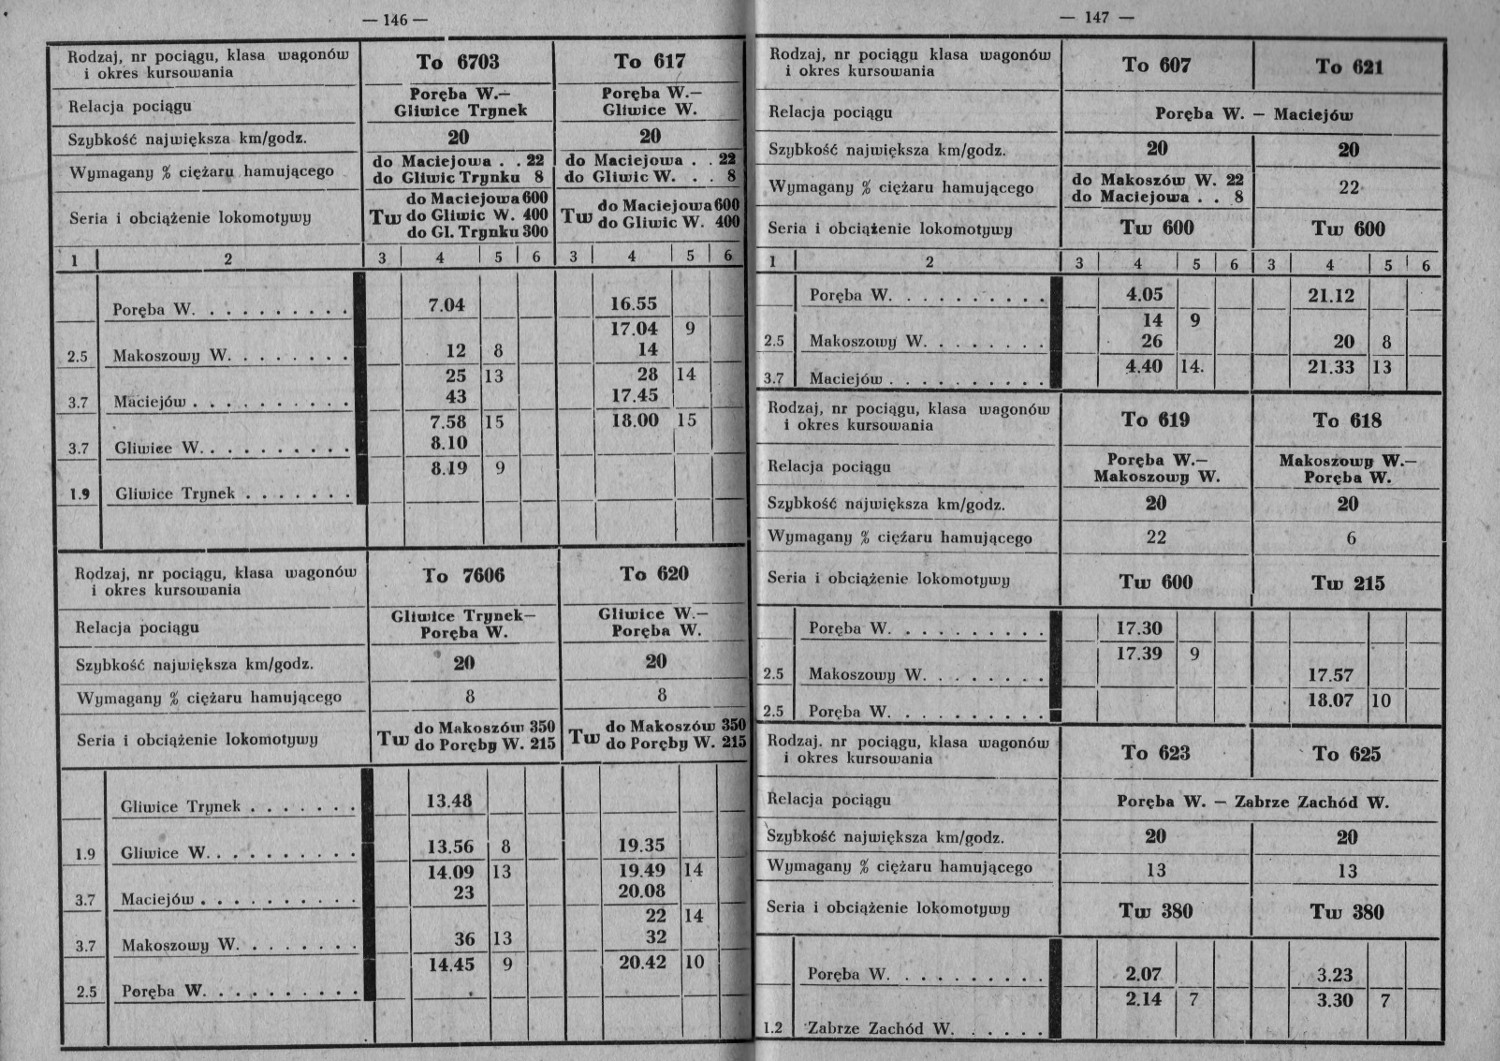 — 146 —
Rodzaj, nr pociągu, klasa wagonów
i okres kursowania
To 6703
To 617
Relacja pociągu
Poręba W.—
Gliwice Trynek
Poręba W.—
Gliwice W.
Szybkość największa km/godz.
20
20
Wymagany % ciężaru hamującego
do Maciejowa . . 22
do Gliwic Trynku 8
do Maciejowa . . 22
do Gliwic W. . . 8
Seria i obciążenie lokomotywy
Tw
do Maciejowa 600
do Gliwic W. 400
do Gl. Trynku 300
Tw
do Maciejowa 600
do Gliwic W. 400
1 2 3 4 5 6 3 4 5 6
Poręba W. . . . . . . . . . 7.04 16.55
17.04 9
2.5 Makoszowy W. . . . . . . . 12 8 14
25 13 28 14
3.7 Maciejów . . . . . . . . . . 43 17.45
7.58 15 18.00 15
3.7 Gliwice W. . . . . . . . . . 8.10
8.19 9
1.9 Gliwice Trynek . . . . . . .
Rodzaj, nr pociągu, klasa wagonów
i okres kursowania
To 7606
To 620
Relacja pociągu
Gliwice Trynek—
Poręba W.
Gliwice W.—
Poręba W.
Szybkość największa km/godz.
20
20
Wymagany % ciężaru hamującego
8
8
Seria i obciążenie lokomotywy
Tw
do Makoszów 350
do Poręby W. 215
Tw
do Makoszów 350
do Poręby W. 215
Gliwice Trynek . . . . . . . 13.48
1.9 Gliwice W. . . . . . . . . . 13.56 8 19.35
14.09 13 19.49 14
3.7 Maciejów . . . . . . . . . . 23 20.08
22 14
3.7 Makoszowy W. . . . . . . . 36 13 32
14.45 9 20.42 10
2.5 Poręba W. . . . . . . . . .
— 147 —
Rodzaj, nr pociągu, klasa wagonów
i okres kursowania
To 607
To 621
Relacja pociągu
Poręba W. — Maciejów
Szybkość największa km/godz.
20
20
Wymagany % ciężaru hamującego
do Makoszów W. 22
do Maciejowa . . 8
22
Seria i obciążenie lokomotywy
Tw 600
Tw 600
1 2 3 4 5 6 3 4 5 6
Poręba W. . . . . . . . . . 4.05 21.12
14 9
2.5 Makoszowy W. . . . . . . . 26 20 8
4.40 14. 21.33 13
3.7 Maciejów . . . . . . . . . .
Rodzaj, nr pociągu, klasa wagonów
i okres kursowania
To 619
To 618
Relacja pociągu
Poręba W.—
Makoszowy W.
Makoszowy W.—
Poręba W.
Szybkość największa km/godz.
20
20
Wymagany % ciężaru hamującego
22
6
Seria i obciążenie lokomotywy
Tw 600
Tw 215
Poręba W. . . . . . . . . . 17.30
17.39 9
2.5 Makoszowy W. . . . . . . . 17.57
18.07 10
2.5 Poręba W. . . . . . . . . .
Rodzaj. nr pociągu, klasa wagonów
i okres kursowania
To 623
To 625
Relacja pociągu
Poręba W. — Zabrze Zachód W.
Szybkość największa km/godz.
20
20
Wymagany % ciężaru hamującego
13
13
Seria i obciążenie lokomotywy
Tw 380
Tw 380
Poręba W. . . . . . . . . . 2.07 3.23
2.14 7 3.30 7
1.2 Zabrze Zachód W. . . . . .